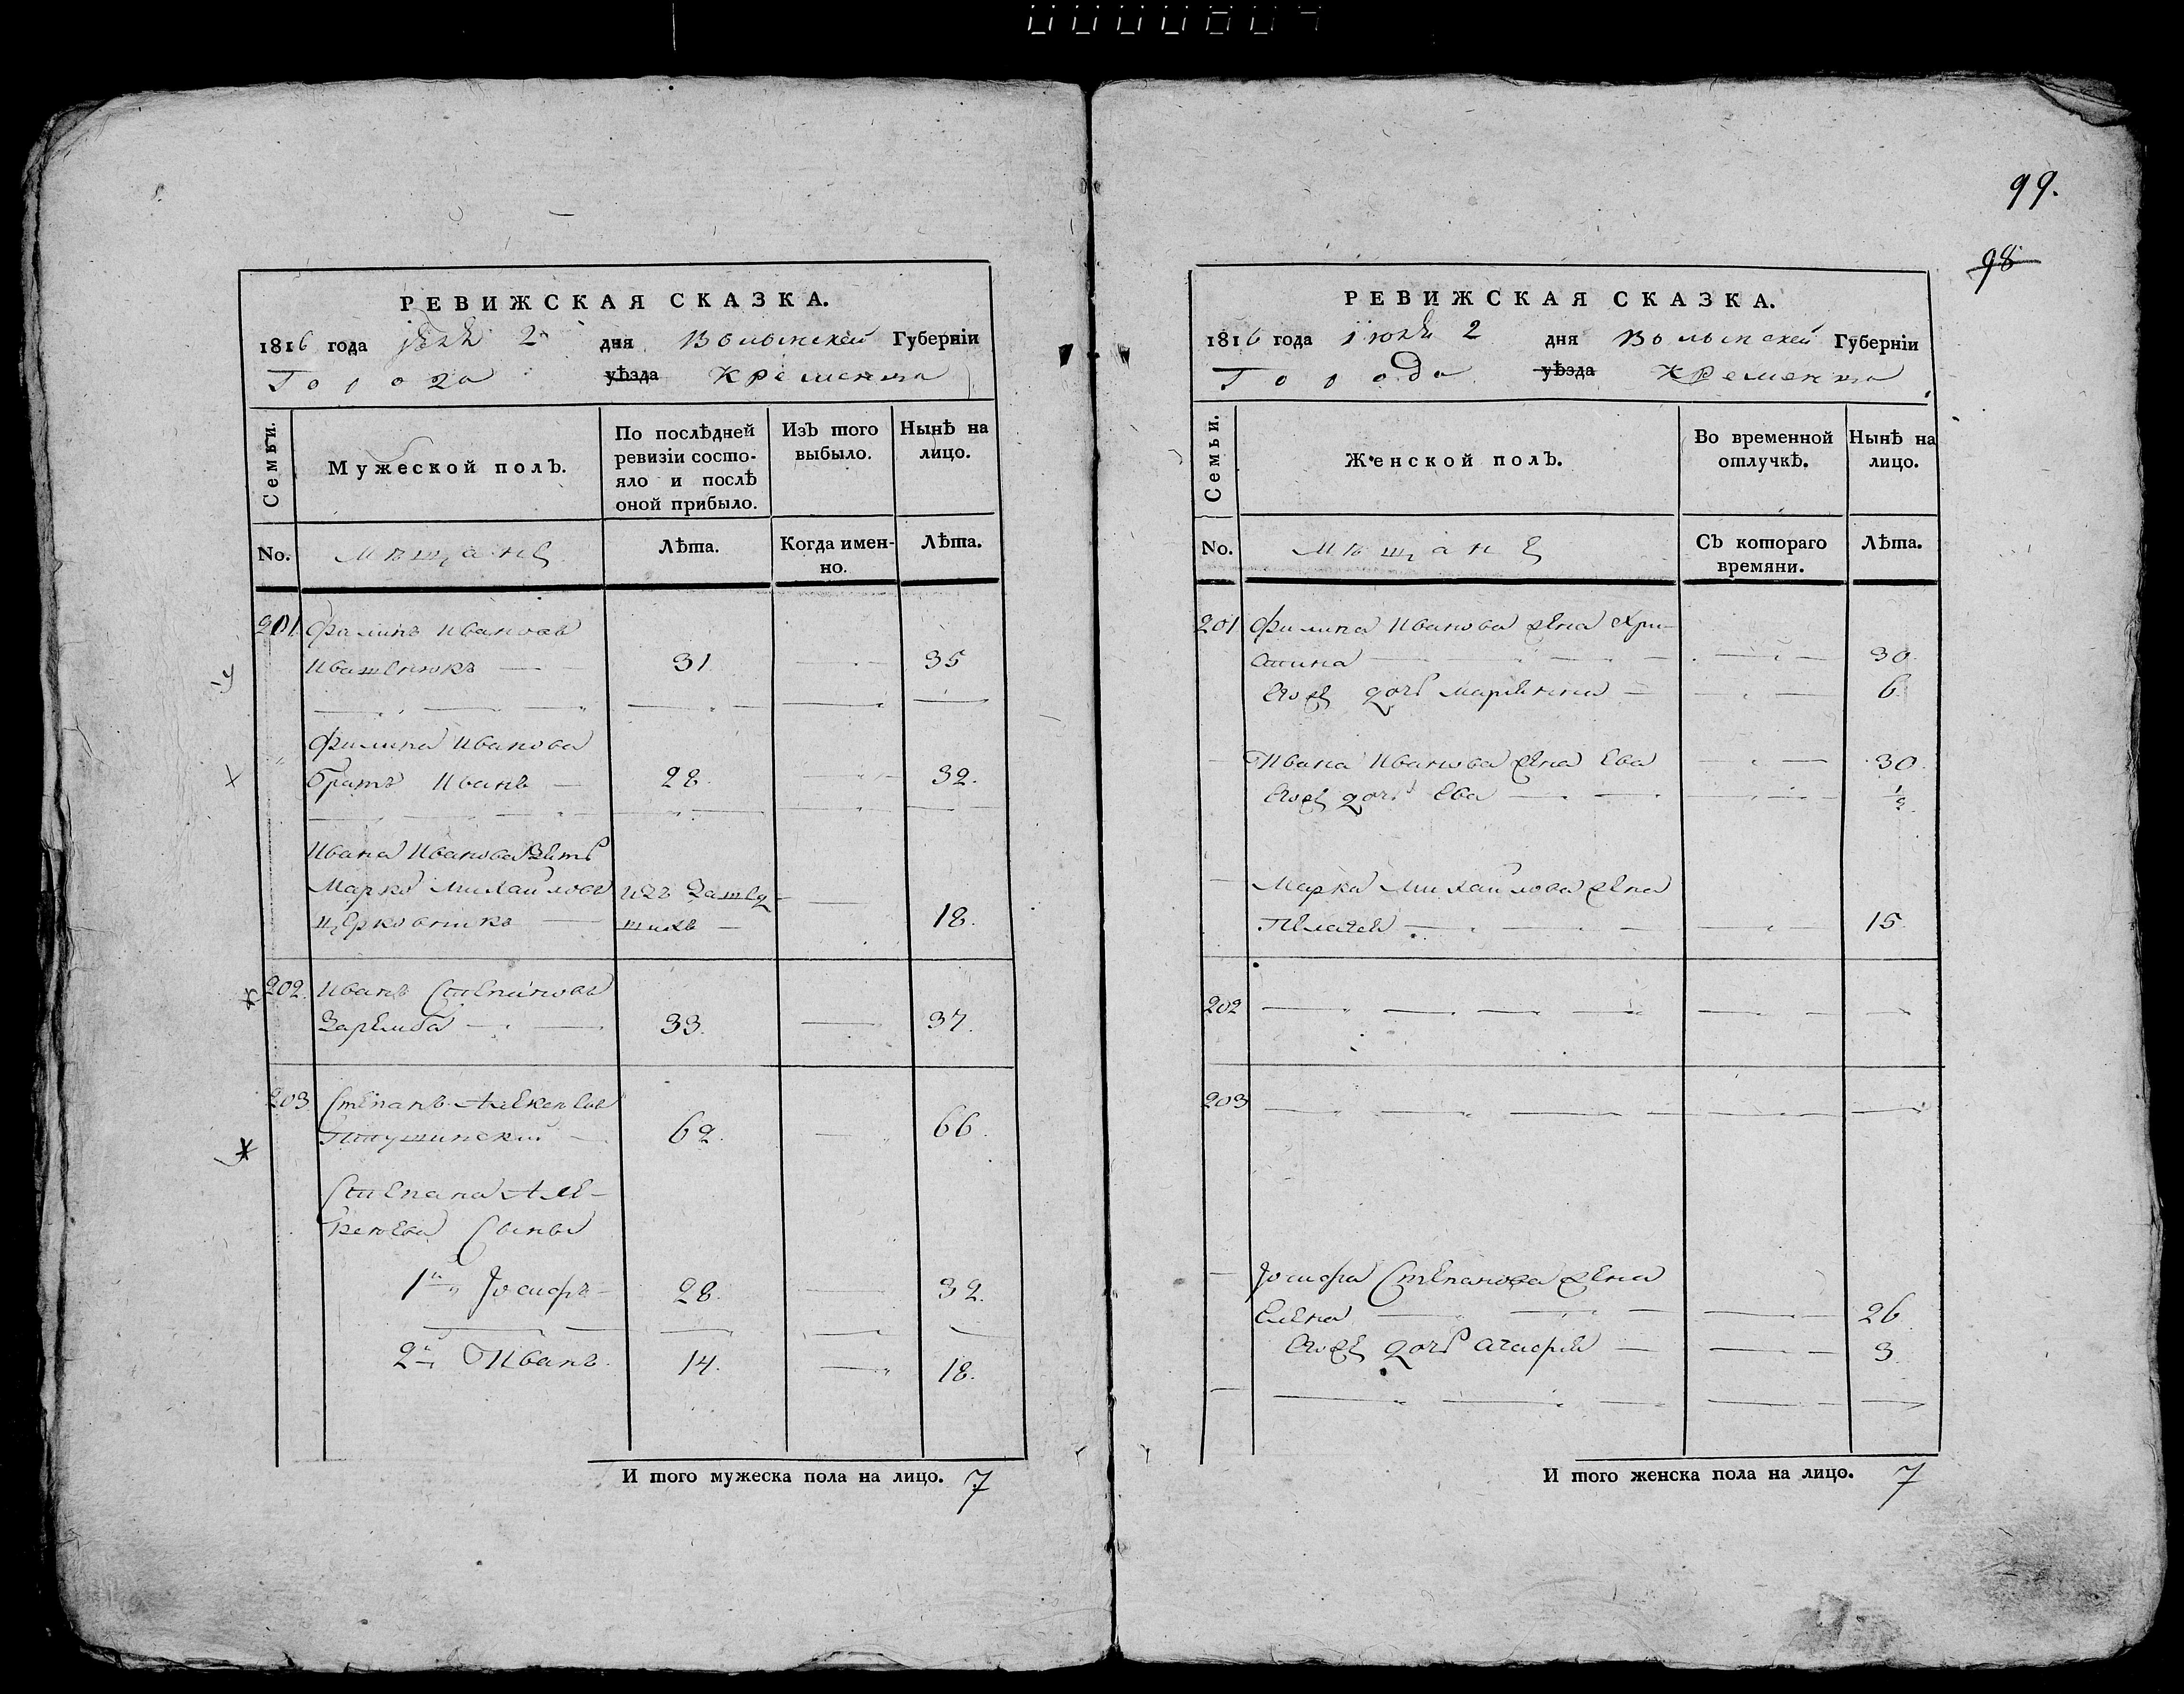 99.
98
РЕВИЖСКАЯ СКАЗКА.
1816 года 2 дня Волынской Губерніи
Города уѣзда Кременца
Семьи.
Мужеской полъ.
По послѣдней ревизіи состояло и послѣ оной прибыло.
Изъ того выбыло.
Нынѣ на лицо.
No. мѣщане
Лѣта.
Когда именно.
Лѣта.
201. Филипъ Ивановъ
31 35
Филипа Иванова
братъ Иванъ 28. 32.
Ивана Иванова зять
Марко Михайловъ изъ
Церковникъ 18.
202. Иванъ Степановъ
Заремба 33. 37.
203 Степанъ Алексѣевъ
62. 66.
Степана Але-
ксѣева сыны
1й Іосифъ 28. 32.
2й Иванъ. 14. 18.
И того мужеска пола на лицо. 7
РЕВИЖСКАЯ СКАЗКА.
1816 года Іюня 2 дня Волынской Губерніи
Города уѣзда Кременца
Семьи.
Женской полъ.
Во временной отлучкѣ.
Нынѣ на лицо.
No. мѣщане
Съ котораго времяни.
Лѣта.
201 Филипа Иванова жена Хри-
стина 30.
его же дочь Маріянна 6.
Ивана Иванова жена Ева 30.
его же дочь Ева ½
Марка Михайлова жена
Пелагея 15
202
203
Іосифа Степанова жена
Елена 26
его же дочь Агафія 3
И того женска пола на лицо. 7